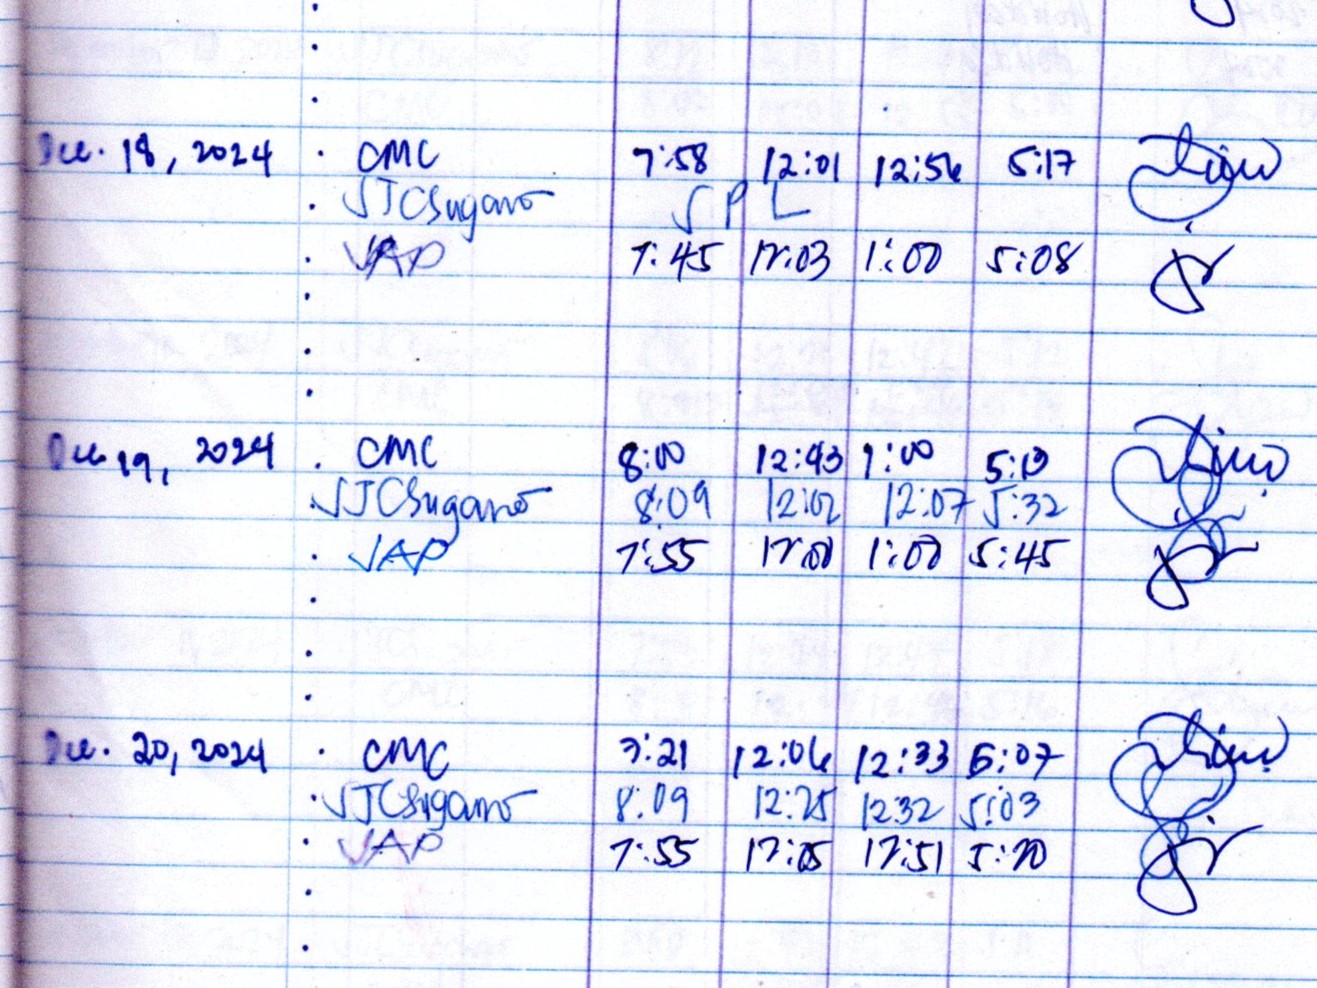 Dec. 18, 2024 CMC 7:58 12:01 12:56 5:17
JTCSugano SPL
JAP 7:45 12:03 1:00 5:08
Dec 19, 2024 CMC 8:00 12:43 1:00 5:13
JTCSugano 8:09 12:02 12:07 5:32
JAP 7:55 12:00 1:00 5:45
Dec. 20, 2024 CMC 7:21 12:06 12:33 5:07
JTCSugano 8:09 12:25 1232 5:03
JAP 7:55 12:05 12:51 5:20